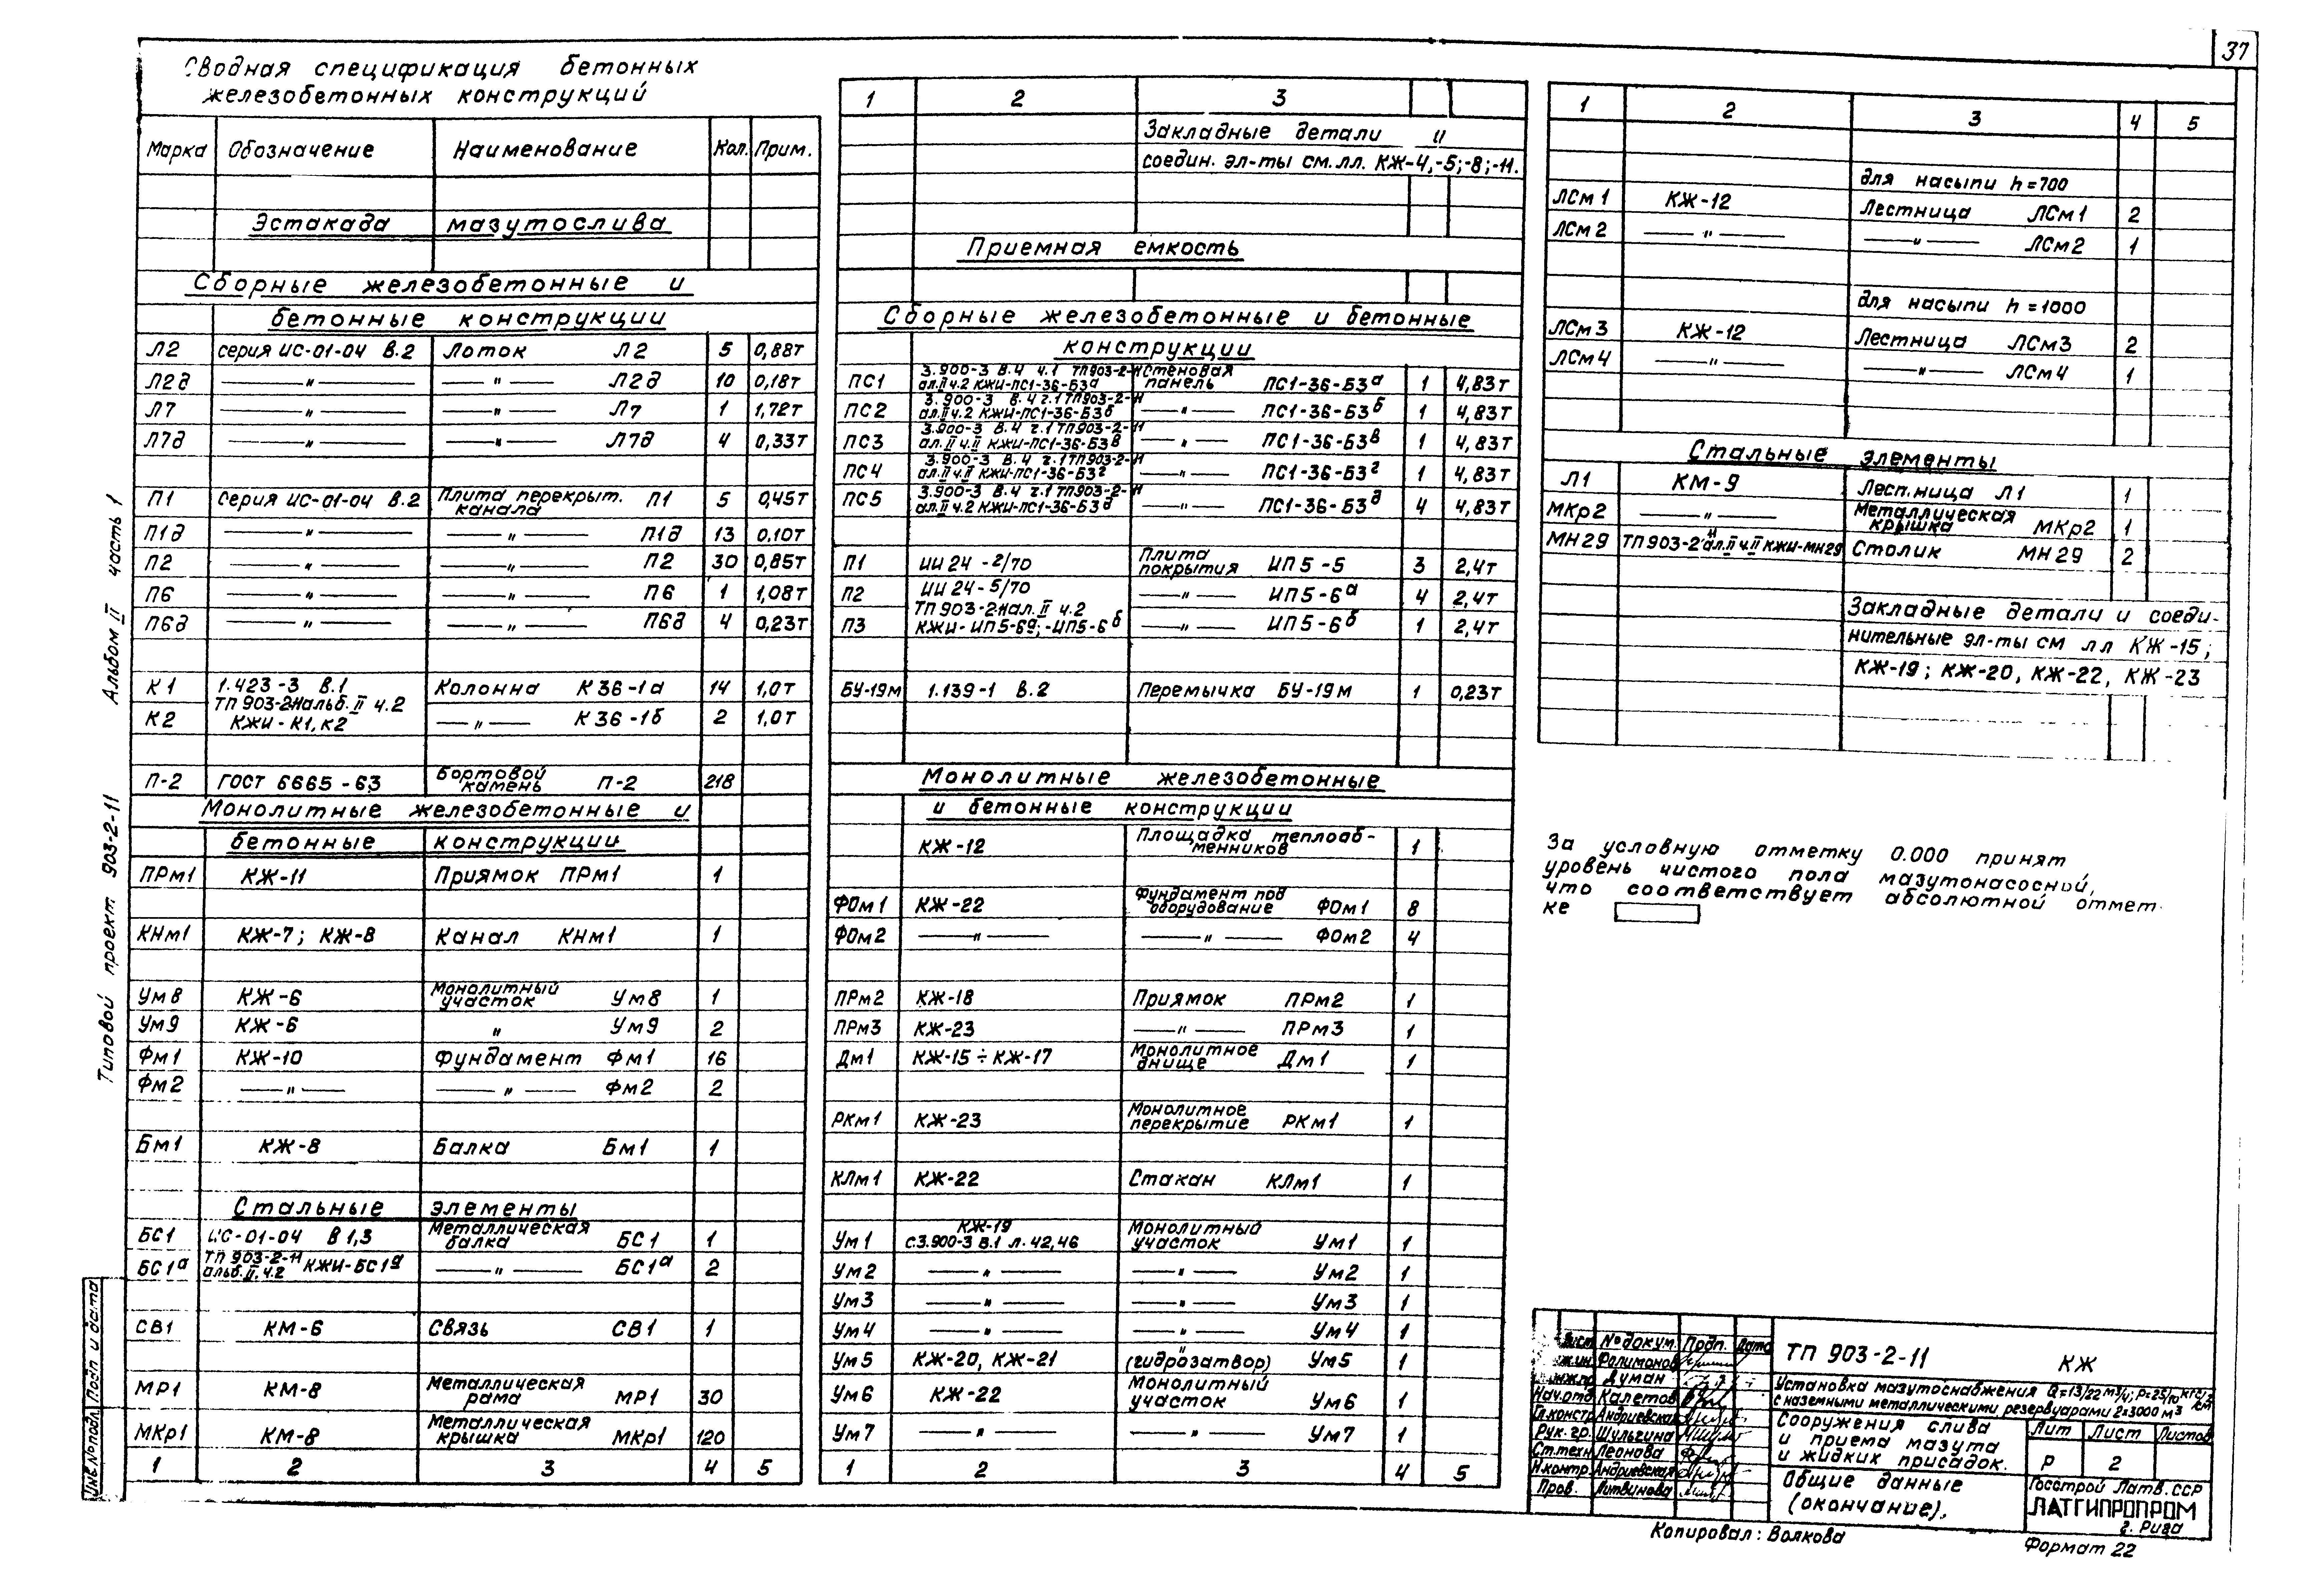 37
Сводная спецификация бетонных
железобетонных конструкций
Марка Обозначение Наименование Кол. Прим.
Эстакада мазутослива
Сборные железобетонные и
бетонные конструкции
Л2 серия ИС-01-04 в.2 Лоток Л2 5 0,88т
Л2д —„— —„— Л2д 10 0,18т
Л7 —„— —„— Л7 1 1,72т
Л7д —„— —„— Л7д 4 0,33т
П1 серия ИС-01-04 в.2 Плита перекрыт. канала П1 5 0,45т
П1д —„— —„— П1д 13 0,10т
П2 —„— —„— П2 30 0,85т
П6 —„— —„— П6 1 1,08т
П6д —„— —„— П6д 4 0,23т
К1 1.423-3 в.1 Колонна К36-1а 14 1,0т
ТП 903-2-11 альб. II ч.2
К2 КЖИ-К1, К2 —„— К36-1б 2 1,0т
П-2 ГОСТ 6665-63 Бортовой камень П-2 218
Монолитные железобетонные и
бетонные конструкции
ПРм1 КЖ-11 Приямок ПРм1 1
КНм1 КЖ-7; КЖ-8 Канал КНм1 1
Ум8 КЖ-6 Монолитный участок Ум8 1
Ум9 КЖ-6 „ Ум9 2
Фм1 КЖ-10 Фундамент Фм1 16
Фм2 —„— —„— Фм2 2
Бм1 КЖ-8 Балка Бм1 1
Стальные элементы
БС1 ИС-01-04 в 1,3 Металлическая балка БС1 1
БС1а ТП 903-2-11 альб. II, ч.2 КЖИ-БС1а —„— БС1а 2
СВ1 КМ-6 Связь СВ1 1
МР1 КМ-8 Металлическая рама МР1 30
МКр1 КМ-8 Металлическая крышка МКр1 120
1 2 3 4 5
1 2 3
Закладные детали и
соедин. эл-ты см. лл. КЖ-4,-5;-8;-11.
Приемная емкость
Сборные железобетонные и бетонные
конструкции
ПС1 3.900-3 в.4 ч.1 ТП903-2-11 ал.II ч.2 КЖИ-ПС1-36-Б3а Стеновая панель ПС1-36-Б3а 1 4,83т
ПС2 3.900-3 в.4 ч.1 ТП903-2-11 ал.II ч.2 КЖИ-ПС1-36-Б3б —„— ПС1-36-Б3б 1 4,83т
ПС3 3.900-3 в.4 ч.1 ТП903-2-11 ал.II ч.II КЖИ-ПС1-36-Б3в —„— ПС1-36-Б3в 1 4,83т
ПС4 3.900-3 в.4 ч.1 ТП903-2-11 ал.II ч.II КЖИ-ПС1-36-Б3г —„— ПС1-36-Б3г 1 4,83т
ПС5 3.900-3 в.4 ч.1 ТП903-2-11 ал.II ч.2 КЖИ-ПС1-36-Б3д —„— ПС1-36-Б3д 4 4,83т
П1 ИИ24-2/70 Плита покрытия ИП5-5 3 2,4т
П2 ИИ24-5/70 —„— ИП5-6а 4 2,4т
ТП 903-2-11 ал. II ч.2
П3 КЖИ-ИП5-6а; -ИП5-6б —„— ИП5-6б 1 2,4т
БУ-19м 1.139-1 в.2 Перемычка БУ-19м 1 0,23т
Монолитные железобетонные
и бетонные конструкции
КЖ-12 Площадка теплооб-менников 1
ФОм1 КЖ-22 Фундамент под оборудование ФОм1 8
ФОм2 —„— —„— ФОм2 4
ПРм2 КЖ-18 Приямок ПРм2 1
ПРм3 КЖ-23 —„— ПРм3 1
Дм1 КЖ-15÷КЖ-17 Монолитное днище Дм1 1
РКм1 КЖ-23 Монолитное перекрытие РКм1 1
КЛм1 КЖ-22 Стакан КЛм1 1
Ум1 КЖ-19 с.3.900-3 в.1 л.42,46 Монолитный участок Ум1 1
Ум2 —„— —„— Ум2 1
Ум3 —„— —„— Ум3 1
Ум4 —„— —„— Ум4 1
Ум5 КЖ-20, КЖ-21 „ (гидрозатвор) Ум5 1
Ум6 КЖ-22 Монолитный участок Ум6 1
Ум7 —„— —„— Ум7 1
1 2 3 4 5
1 2 3 4 5
для насыпи h=700
ЛСм1 КЖ-12 Лестница ЛСм1 2
ЛСм2 —„— —„— ЛСм2 1
для насыпи h=1000
ЛСм3 КЖ-12 Лестница ЛСм3 2
ЛСм4 —„— —„— ЛСм4 1
Стальные элементы
Л1 КМ-9 Лестница Л1 1
МКр2 —„— Металлическая крышка МКр2 1
МН29 ТП903-2-11 ал.II ч.II КЖИ-МН29 Столик МН29 2
Закладные детали и соеди-
нительные эл-ты см лл КЖ-15;
КЖ-19; КЖ-20, КЖ-22, КЖ-23
За условную отметку 0.000 принят
уровень чистого пола мазутонасосной,
что соответствует абсолютной отмет-
ке
Лист №докум. Подп. Дата
Филимонов
Думан
Нач.отд Калетов
Гл.констр. Андриевская
Рук. гр. Шульгина
Ст.техн. Леонова
Н.контр. Андриевская
Пров. Литвинова
ТП 903-2-11 КЖ
Установка мазутоснабжения Q=13/22 м3/ч; Р=25/10 кгс/см2
с наземными металлическими резервуарами 2×3000 м3
Сооружения слива
и приема мазута
и жидких присадок.
Лит Лист Листов
Р 2
Общие данные
(окончание).
Госстрой Латв. ССР
ЛАТГИПРОПРОМ
г. Рига
Копировал: Волкова
Формат 22
Типовой проект 903-2-11 Альбом II часть 1
Инв.№подл. Подп и дата